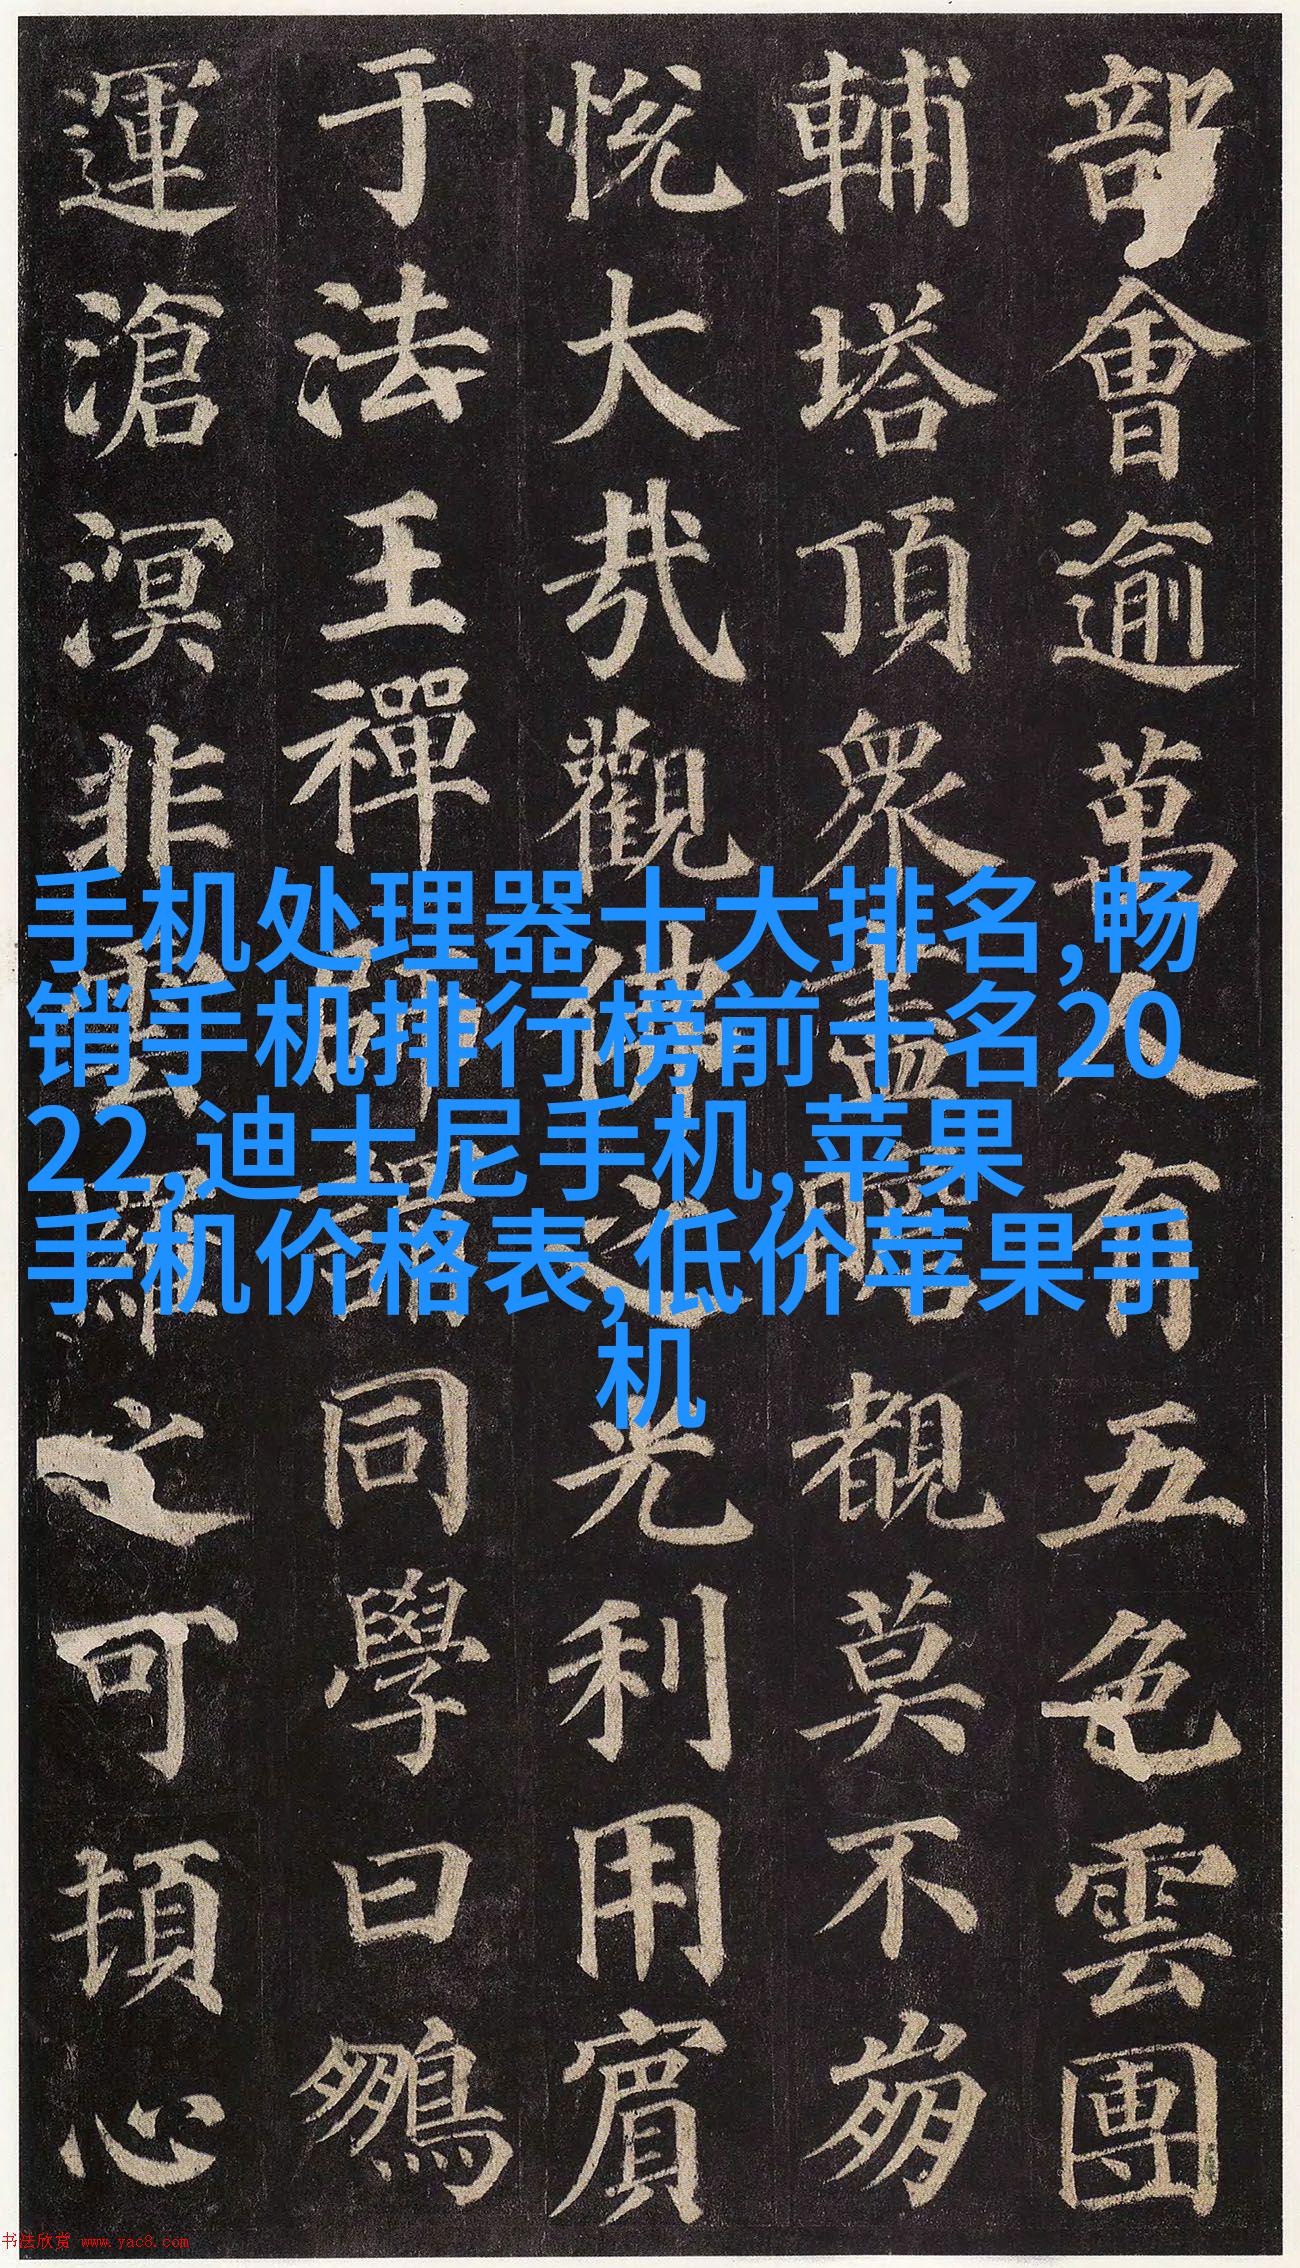 手机处理器十大排名,畅
销手机排行榜前十名20
22,迪士尼手机,苹果
手机价格表,低价苹果手
机
部會逾萬人有五色雲團
輔塔頂眾盡瞻覩莫不崩
悅大哉觀佛之光利用賓
于法王禪師謂同學曰鵬
運滄溟非雲羅之可頓心
书法欣赏 www.yac8.com